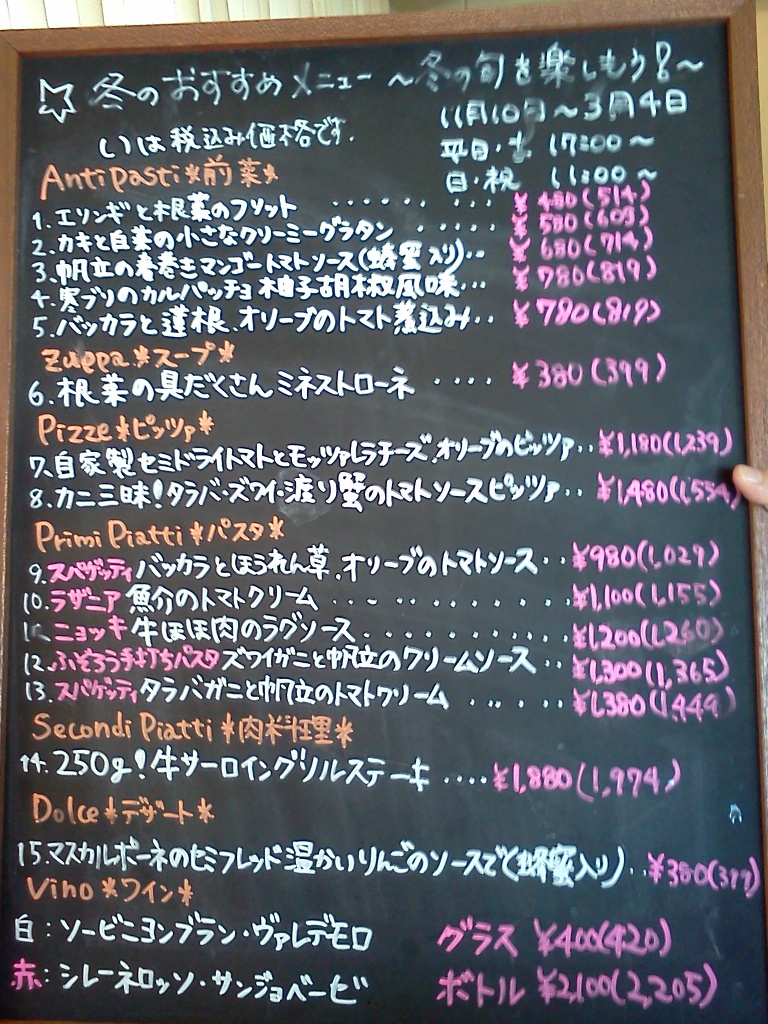 ☆冬のおすすめメニュー ～冬の旬を楽しもう！～
11月10日～3月4日
( )は税込み価格です。
平日・土 17:00～
日・祝 11:00～
Antipasti*前菜*
1.エリンギと根菜のフリット ‥‥‥ ¥480(514)
2.カキと白菜の小さなクリーミーグラタン ‥‥ ¥580(609)
3.帆立の春巻きマンゴートマトソース(蜂蜜入り)‥ ¥680(714)
4.寒ブリのカルパッチョ 柚子胡椒風味‥ ¥780(819)
5.バッカラと蓮根、オリーブのトマト煮込み‥ ¥780(819)
Zuppa*スープ*
6.根菜の具だくさんミネストローネ ‥‥ ¥380(399)
Pizze*ピッツァ*
7.自家製セミドライトマトとモッツァレラチーズ、オリーブのピッツァ‥ ¥1,180(1,239)
8.カニ三昧！タラバ・ズワイ・渡り蟹のトマトソースピッツァ‥ ¥1,480(1,554)
Primi Piatti*パスタ*
9.スパゲッティ バッカラとほうれん草、オリーブのトマトソース‥ ¥980(1,029)
10.ラザニア 魚介のトマトクリーム ‥‥‥‥‥ ¥1,100(1,155)
11.ニョッキ 牛ほほ肉のラグソース‥‥‥‥‥ ¥1,200(1,260)
12.ふぞろう手打ちパスタ ズワイガニと帆立のクリームソース‥ ¥1,300(1,365)
13.スパゲッティ タラバガニと帆立のトマトクリーム ‥‥ ¥1,380(1,449)
Secondi Piatti*肉料理*
14.250g！牛サーロイングリルステーキ ‥‥ ¥1,880(1,974)
Dolce*デザート*
15.マスカルポーネのセミフレッド温かいりんごのソースで(蜂蜜入り)‥ ¥380(399)
Vino*ワイン*
白：ソービニヨンブラン・ヴァレデモロ グラス ¥400(420)
赤：シレーネロッソ・サンジョベーゼ ボトル ¥2,100(2,205)